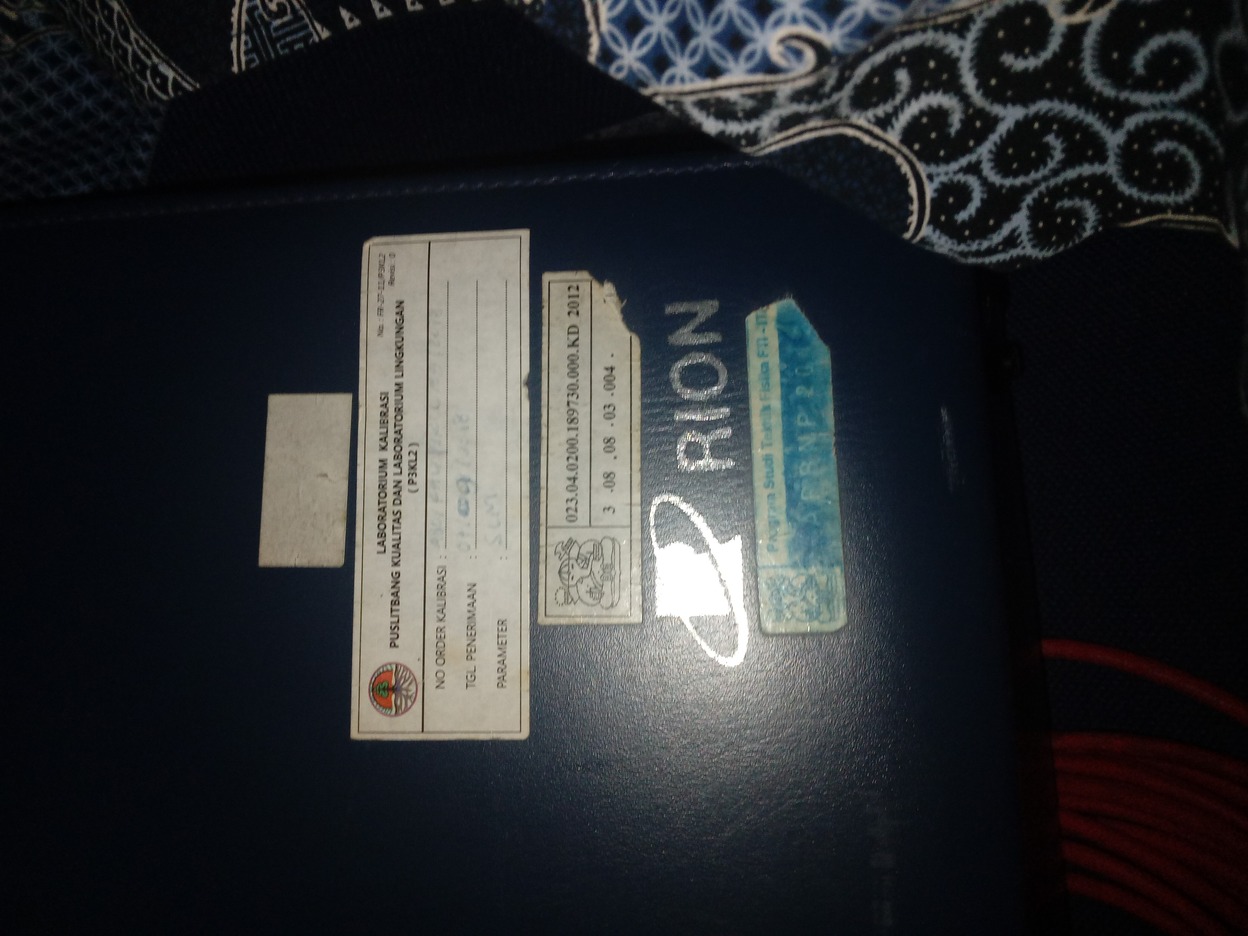 LABORATORIUM KALIBRASI
PUSLITBANG KUALITAS DAN LABORATORIUM LINGKUNGAN
( P3KL2 )
No. : FR-27-11/P3KL2
Revisi : 0
NO ORDER KALIBRASI :
TGL. PENERIMAAN :
PARAMETER : SLM
023.04.0200.189730.000.KD 2012
3 .08 .08 .03 .004 .
RION
Program Studi Teknik Fisika FTI -